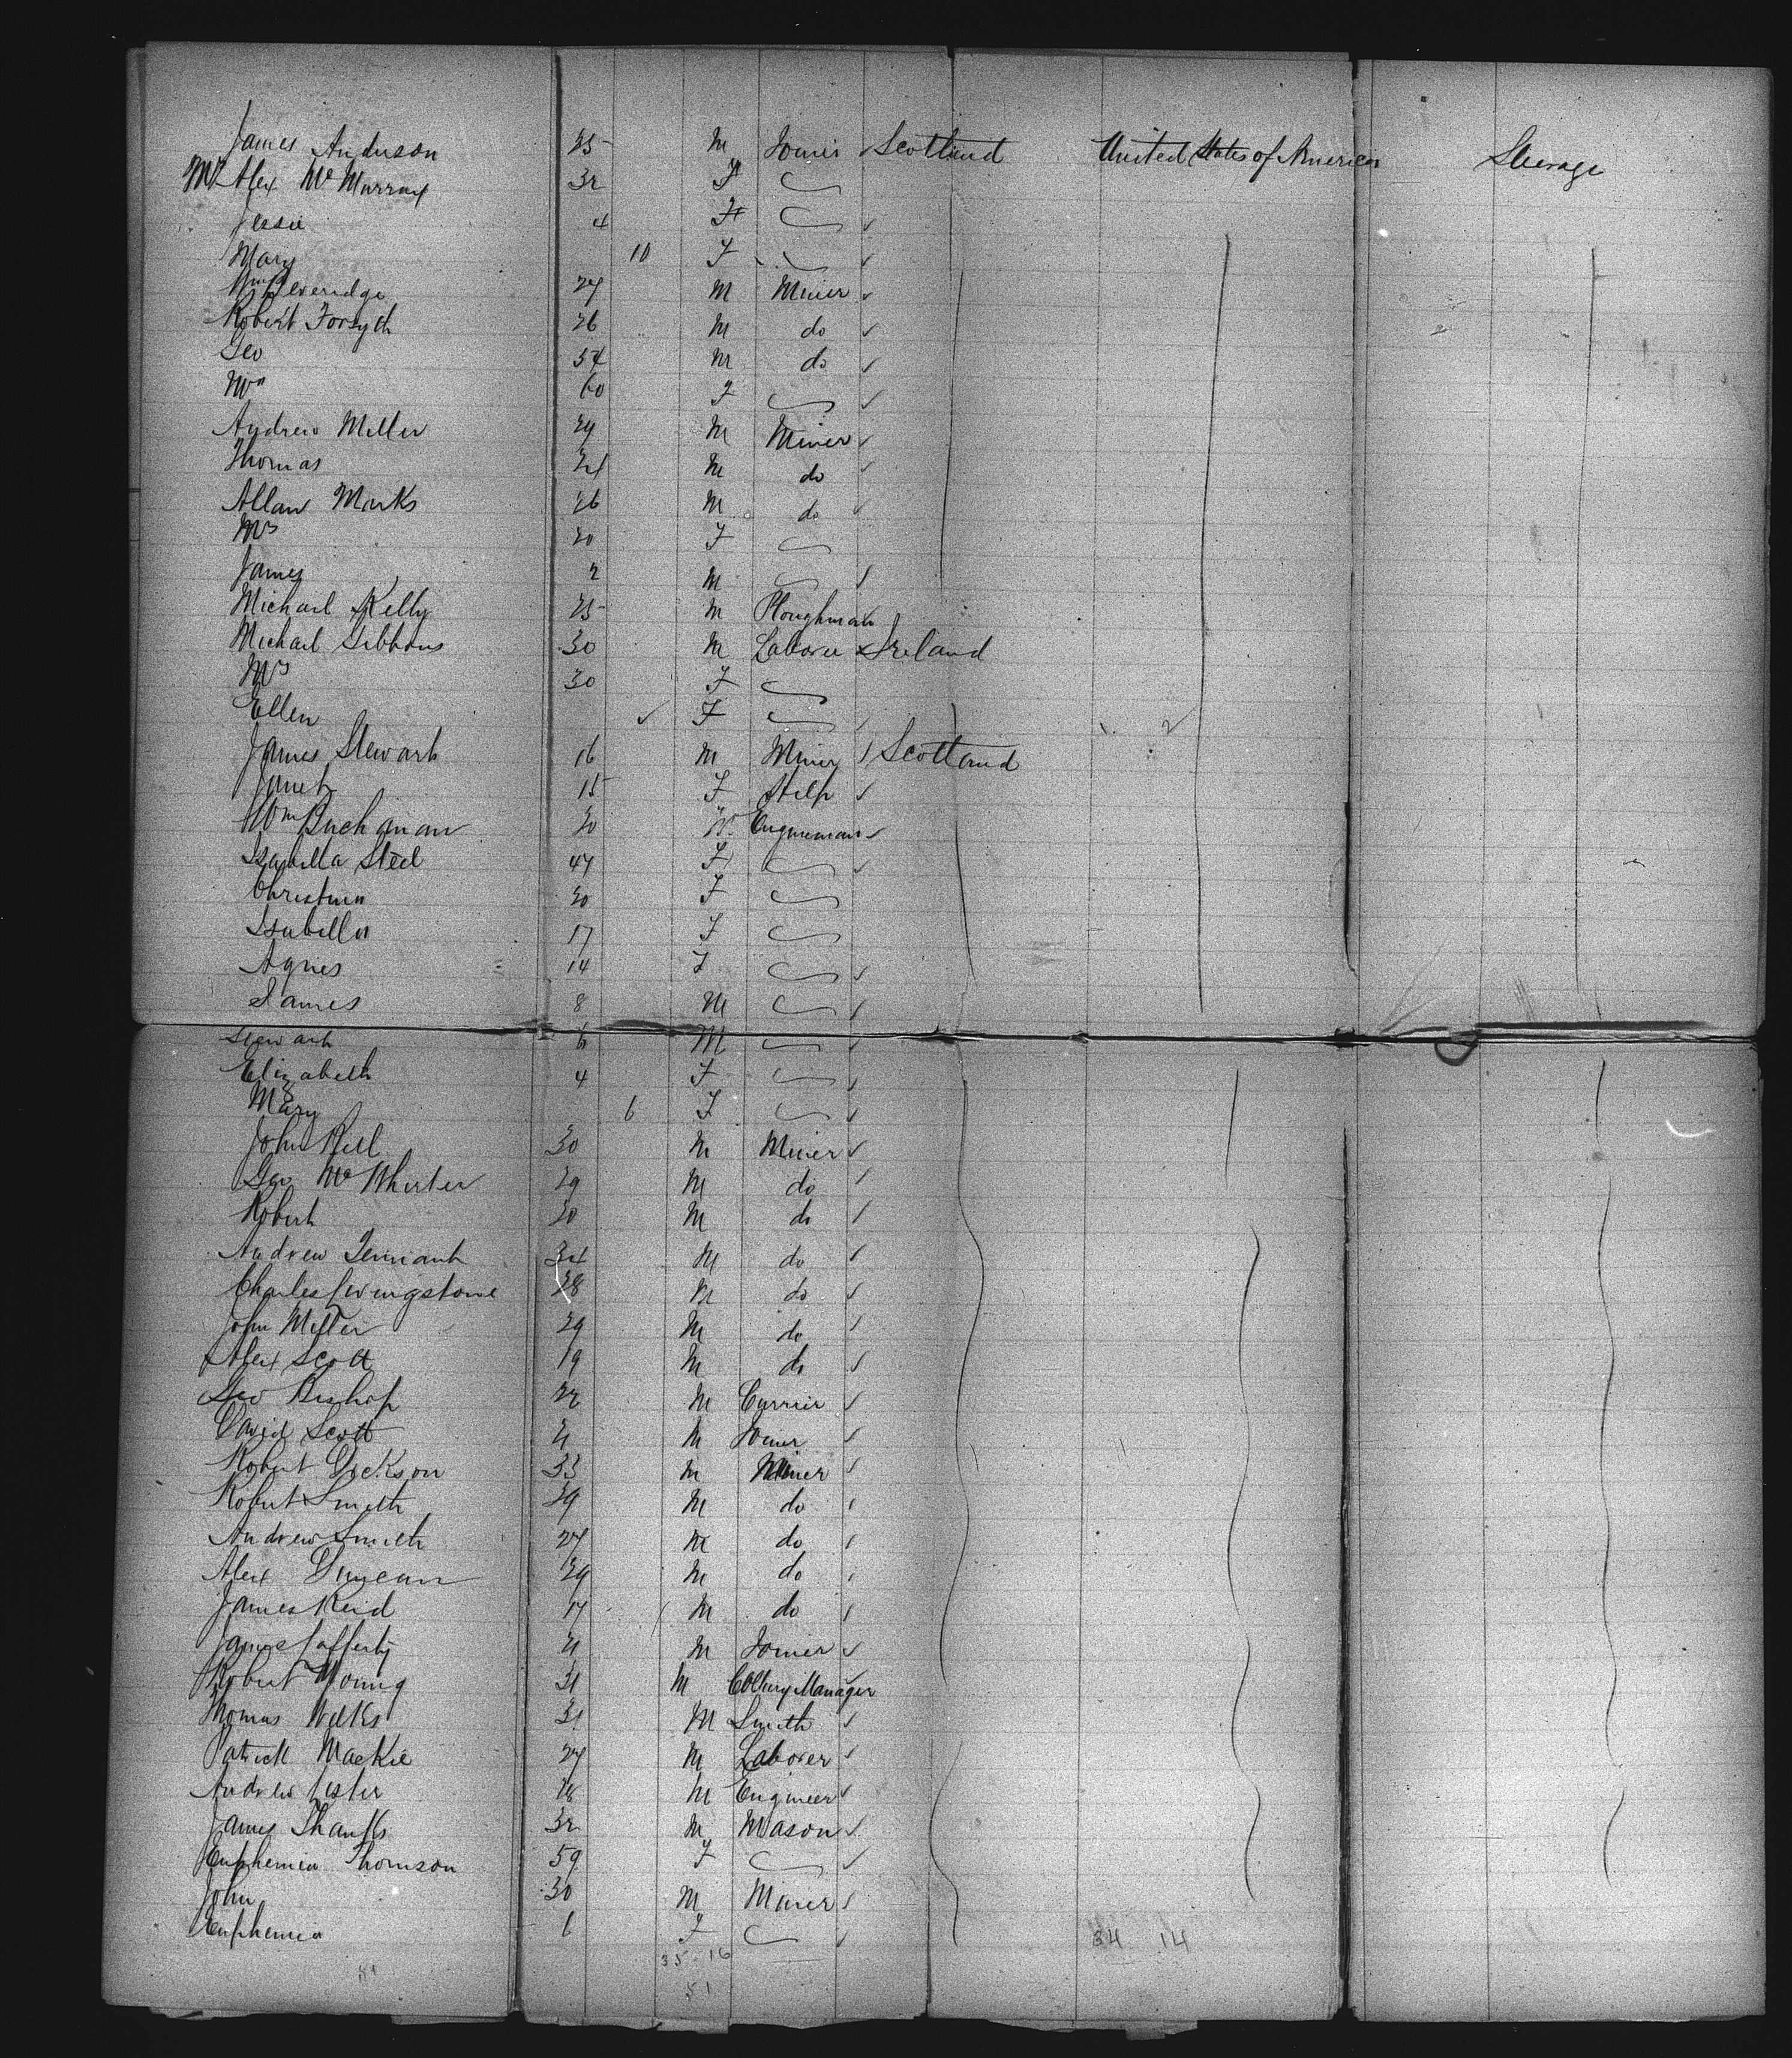 James Anderson 25 M Joiner Scotland United States of America Steerage
Mrs Alex McMurray 32 F
Jessie 4 F
Mary 10 F
Wm Beveridge 27 M Miner
Robert Forsyth 26 M do
Geo 54 M do
Mrs 60 F
Andrew Miller 29 M Miner
Thomas 21 M do
Allan Marks 26 M do
Mrs 20 F
James 2 M
Michael Kelly 25 M Ploughman
Michael Gibbons 30 M Laborer Ireland
Mrs 30 F
Ellen F
James Stewart 16 M Miner Scotland
Janet 15 F Help
Wm Buchanan 20 M Engineman
Isabella Steel 47 F
Christina 20 F
Isabella 17 F
Agnes 14 F
James 8 M
Stewart 6 M
Elizabeth 4 F
Mary 6 F
John Bell 30 M Miner
Geo McWhirter 29 M do
Robert 20 M do
Andrew Tennant 34 M do
Charles Livingstone 28 M do
John Miller 29 M do
Alex Scott 19 M do
Geo Bishop 22 M Currier
David Scott 21 M Joiner
Robert Dickson 33 M Miner
Robert Smith 39 M do
Andrew Smith 27 M do
Alex Duncan 29 M do
James Reid 17 M do
James Lafferty 21 M Joiner
Robert Young 31 M Colliery Manager
Thomas Wilks 31 M Smith
Patrick Mackie 27 M Laborer
Andrew Lister 18 M Engineer
James Shanks 32 M Mason
Euphemia Thomson 59 F
John 30 M Miner
Euphemia 6 F
34 14
35 - 16
51
51